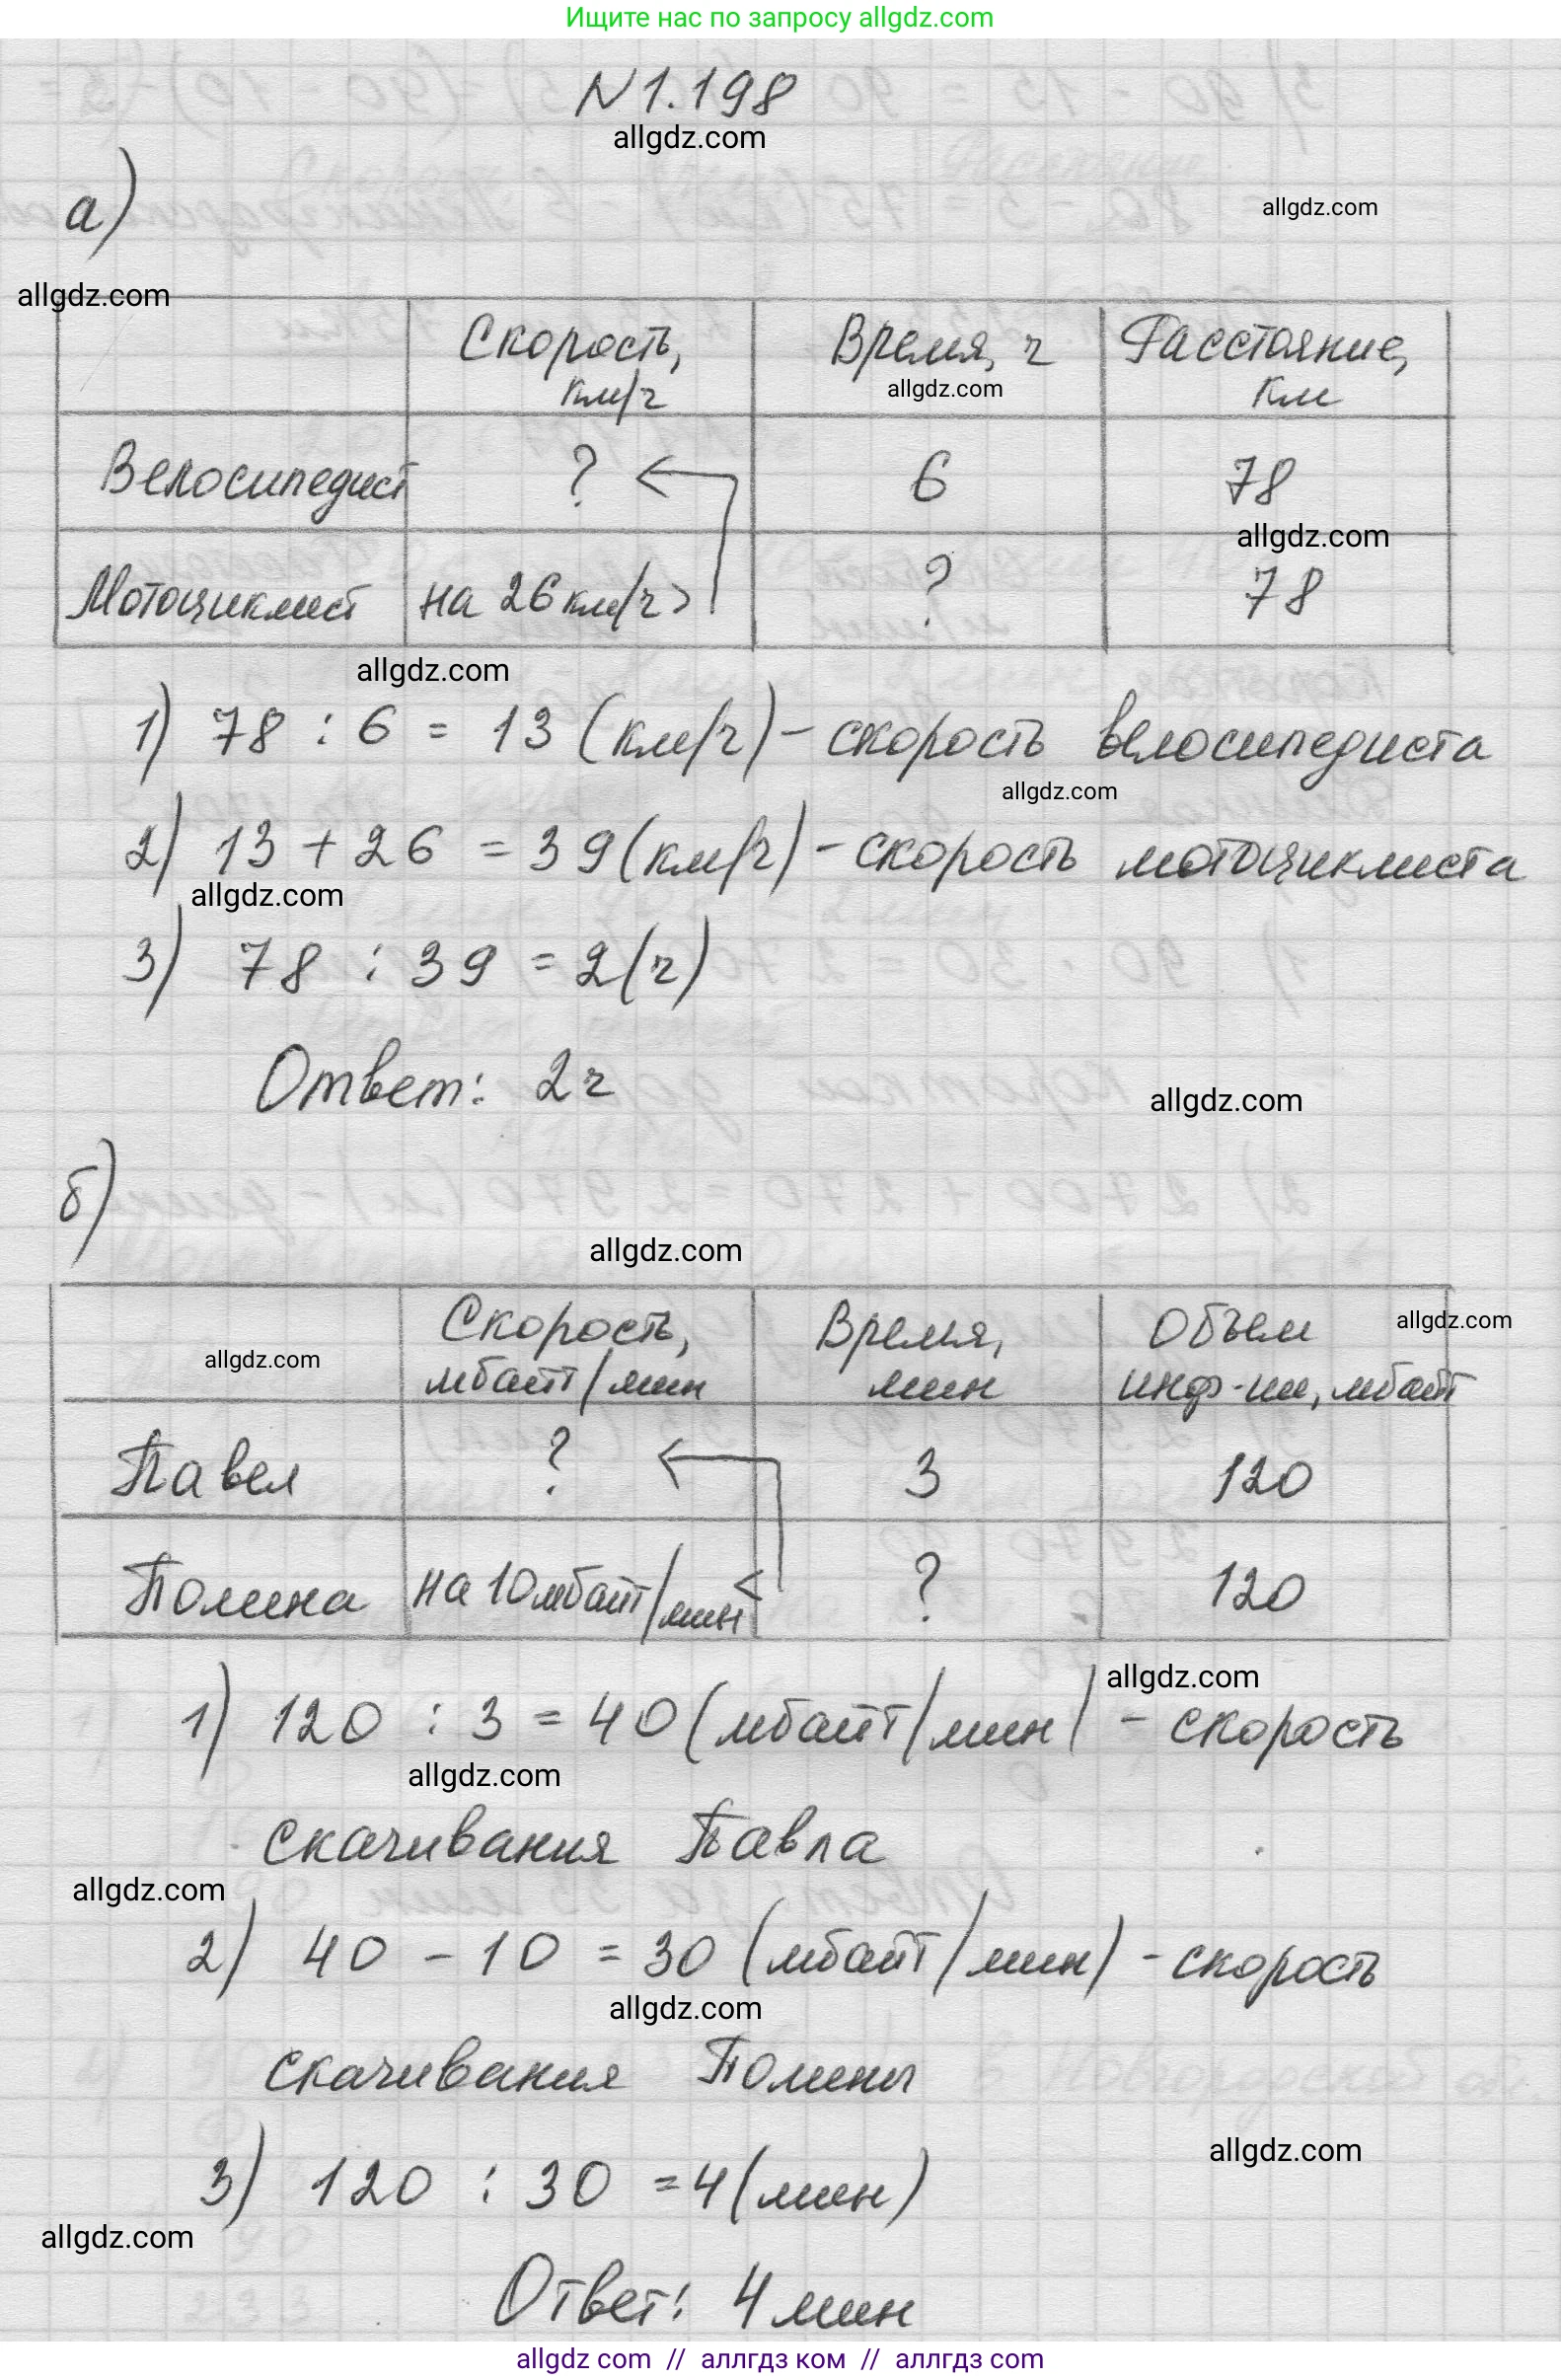 Ищите нас по запросу allgdz.com
N1.198
allgdz.com
а)
allgdz.com
allgdz.com
Скорость, км/ч
Время, ч
Расстояние, км
allgdz.com
Велосипедист ? 6 78
allgdz.com
Мотоциклист на 26 км/ч > ? 78
allgdz.com
1) 78 : 6 = 13 (км/ч) - скорость велосипедиста
allgdz.com
2) 13 + 26 = 39 (км/ч) - скорость мотоциклиста
allgdz.com
3) 78 : 39 = 2 (ч)
Ответ: 2 ч
allgdz.com
б)
allgdz.com
Скорость, мбайт/мин
Время, мин
Объем инф-ии, мбайт
allgdz.com
allgdz.com
Павел ? 3 120
Полина на 10 мбайт/мин < ? 120
allgdz.com
1) 120 : 3 = 40 (мбайт/мин) - скорость
allgdz.com
скачивания Павла
allgdz.com
2) 40 - 10 = 30 (мбайт/мин) - скорость
allgdz.com
скачивания Полины
allgdz.com
3) 120 : 30 = 4 (мин)
allgdz.com
Ответ: 4 мин
allgdz com // аллгдз ком // аллгдз com